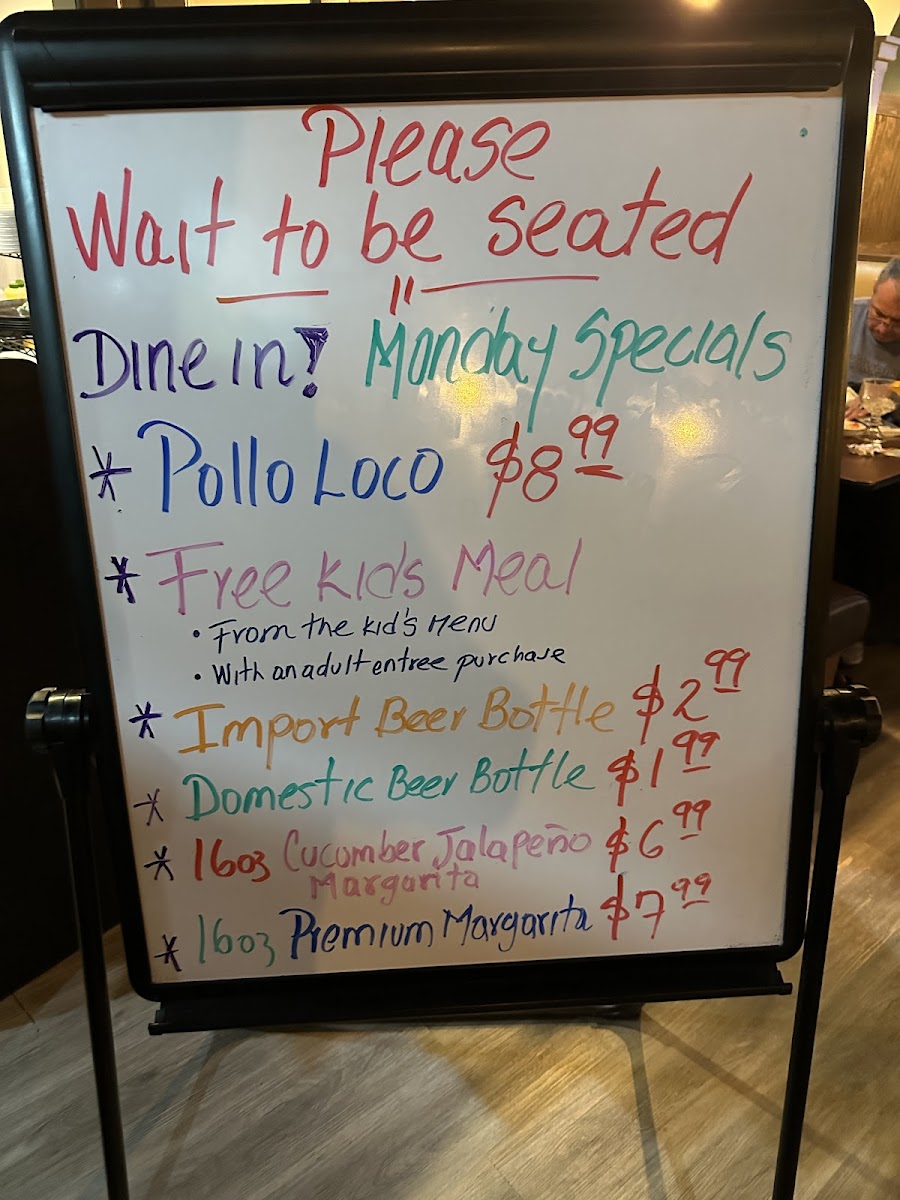 Please
Wait to be seated
Dine in! Monday Specials
* Pollo Loco $8.99
* Free Kid's Meal
• From the kid's Menu
• With an adult entree purchase
* Import Beer Bottle $2.99
* Domestic Beer Bottle $1.99
* 16oz Cucumber Jalapeño $6.99
Margarita
* 16oz Premium Margarita $7.99